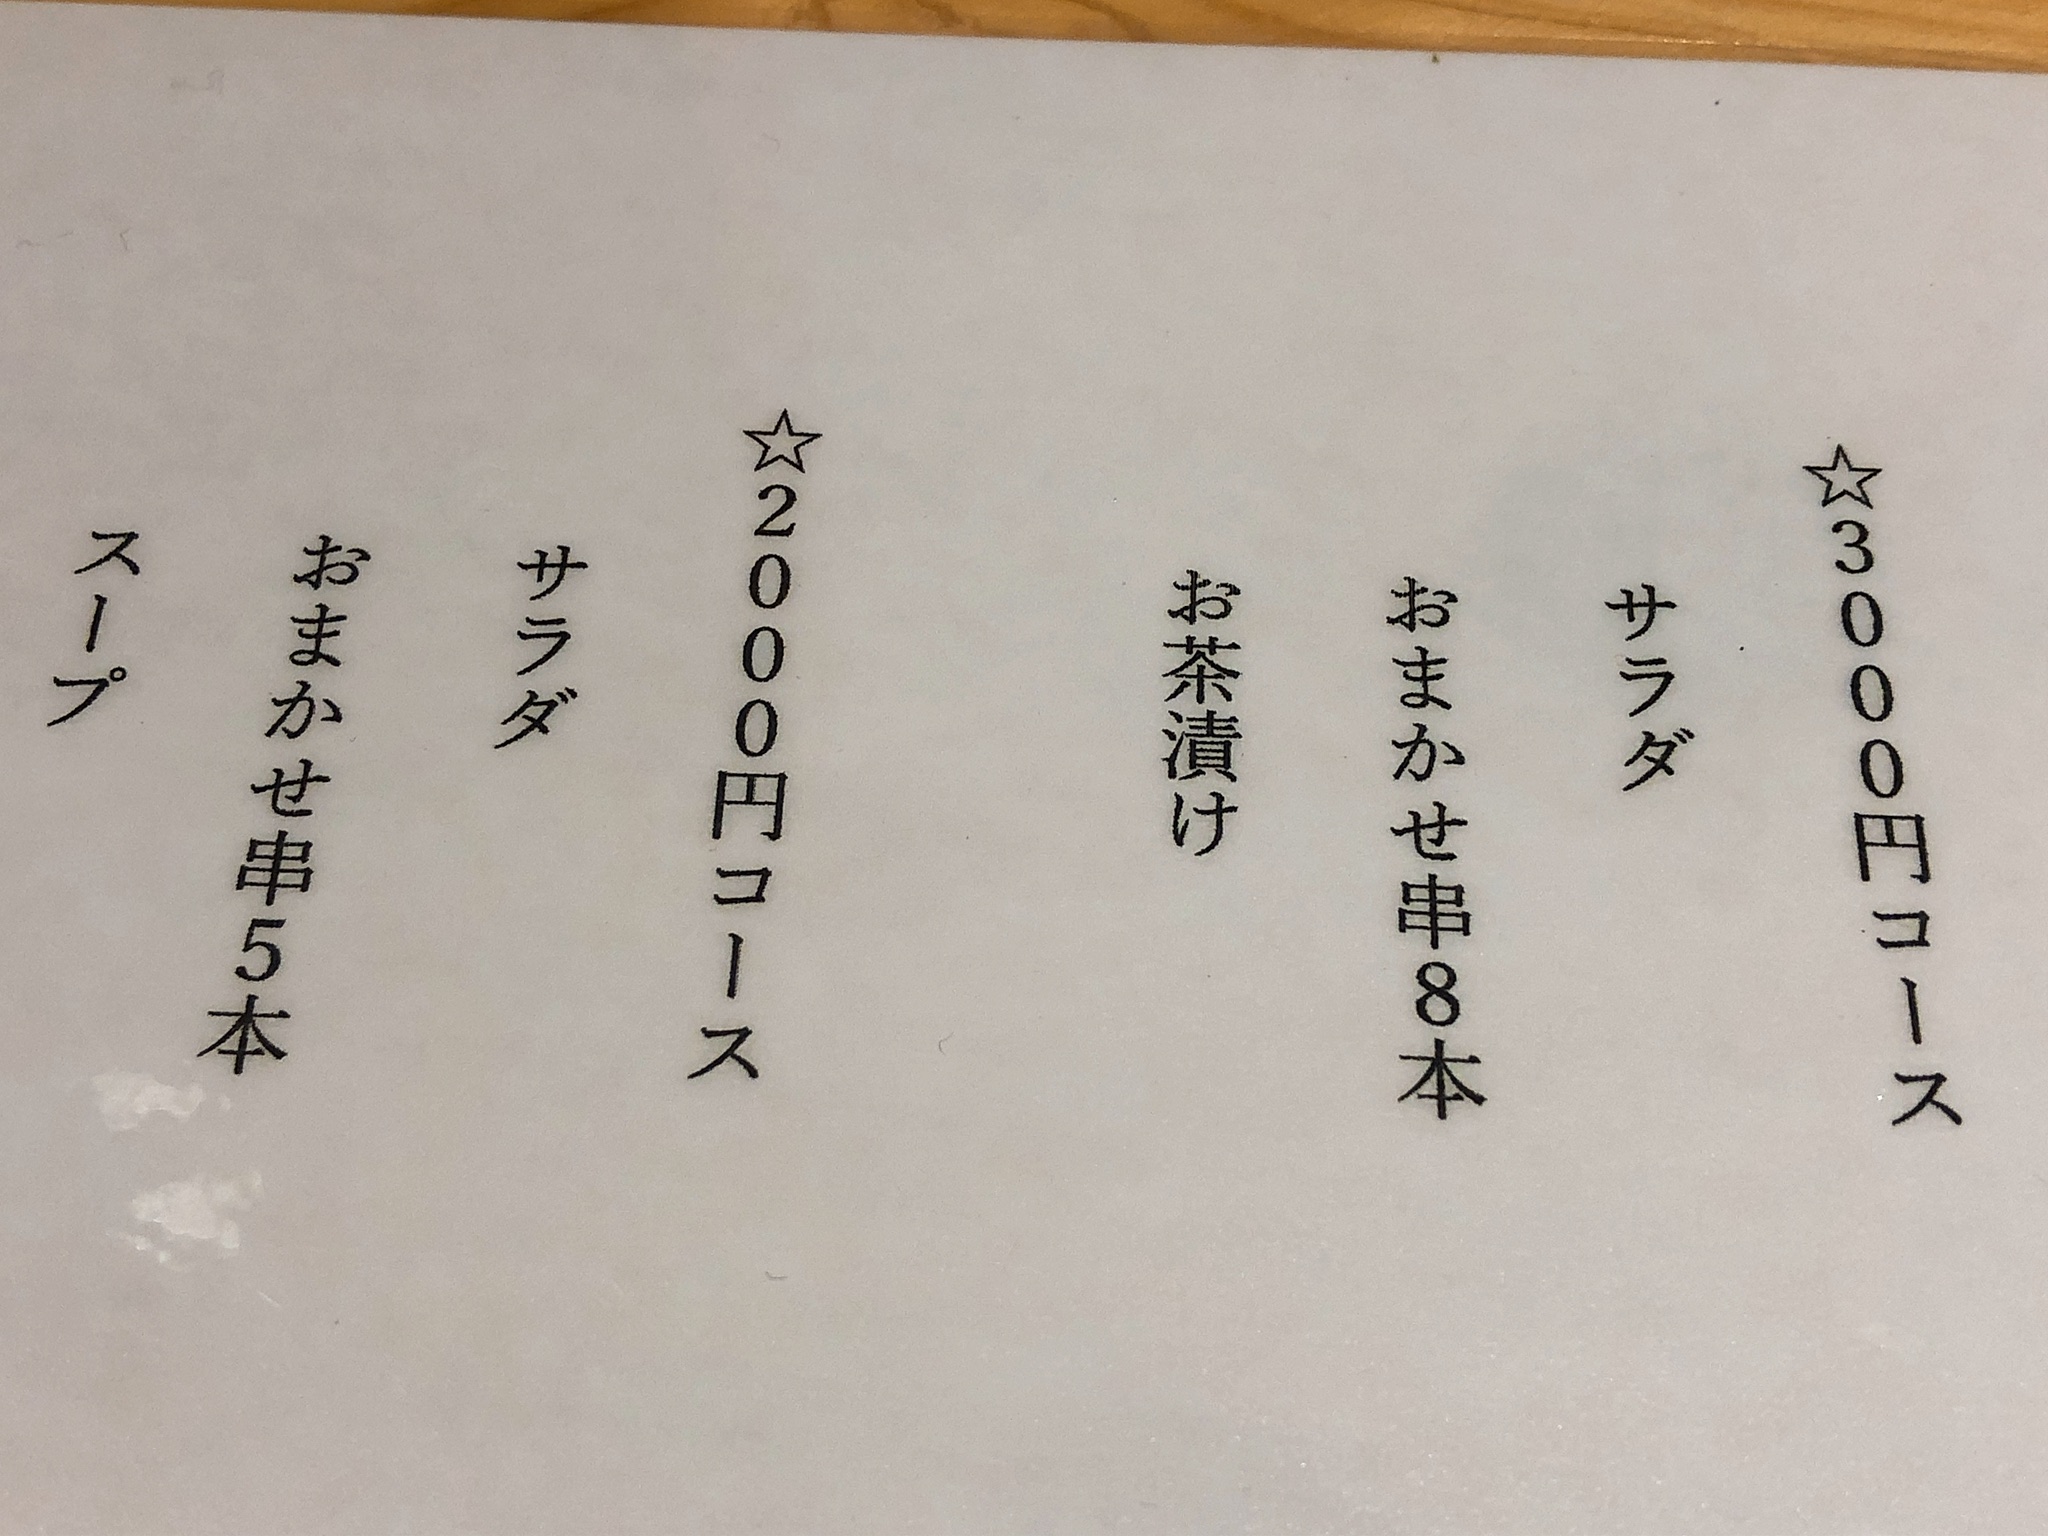 ☆3000円コース
サラダ
おまかせ串8本
お茶漬け
☆2000円コース
サラダ
おまかせ串5本
スープ